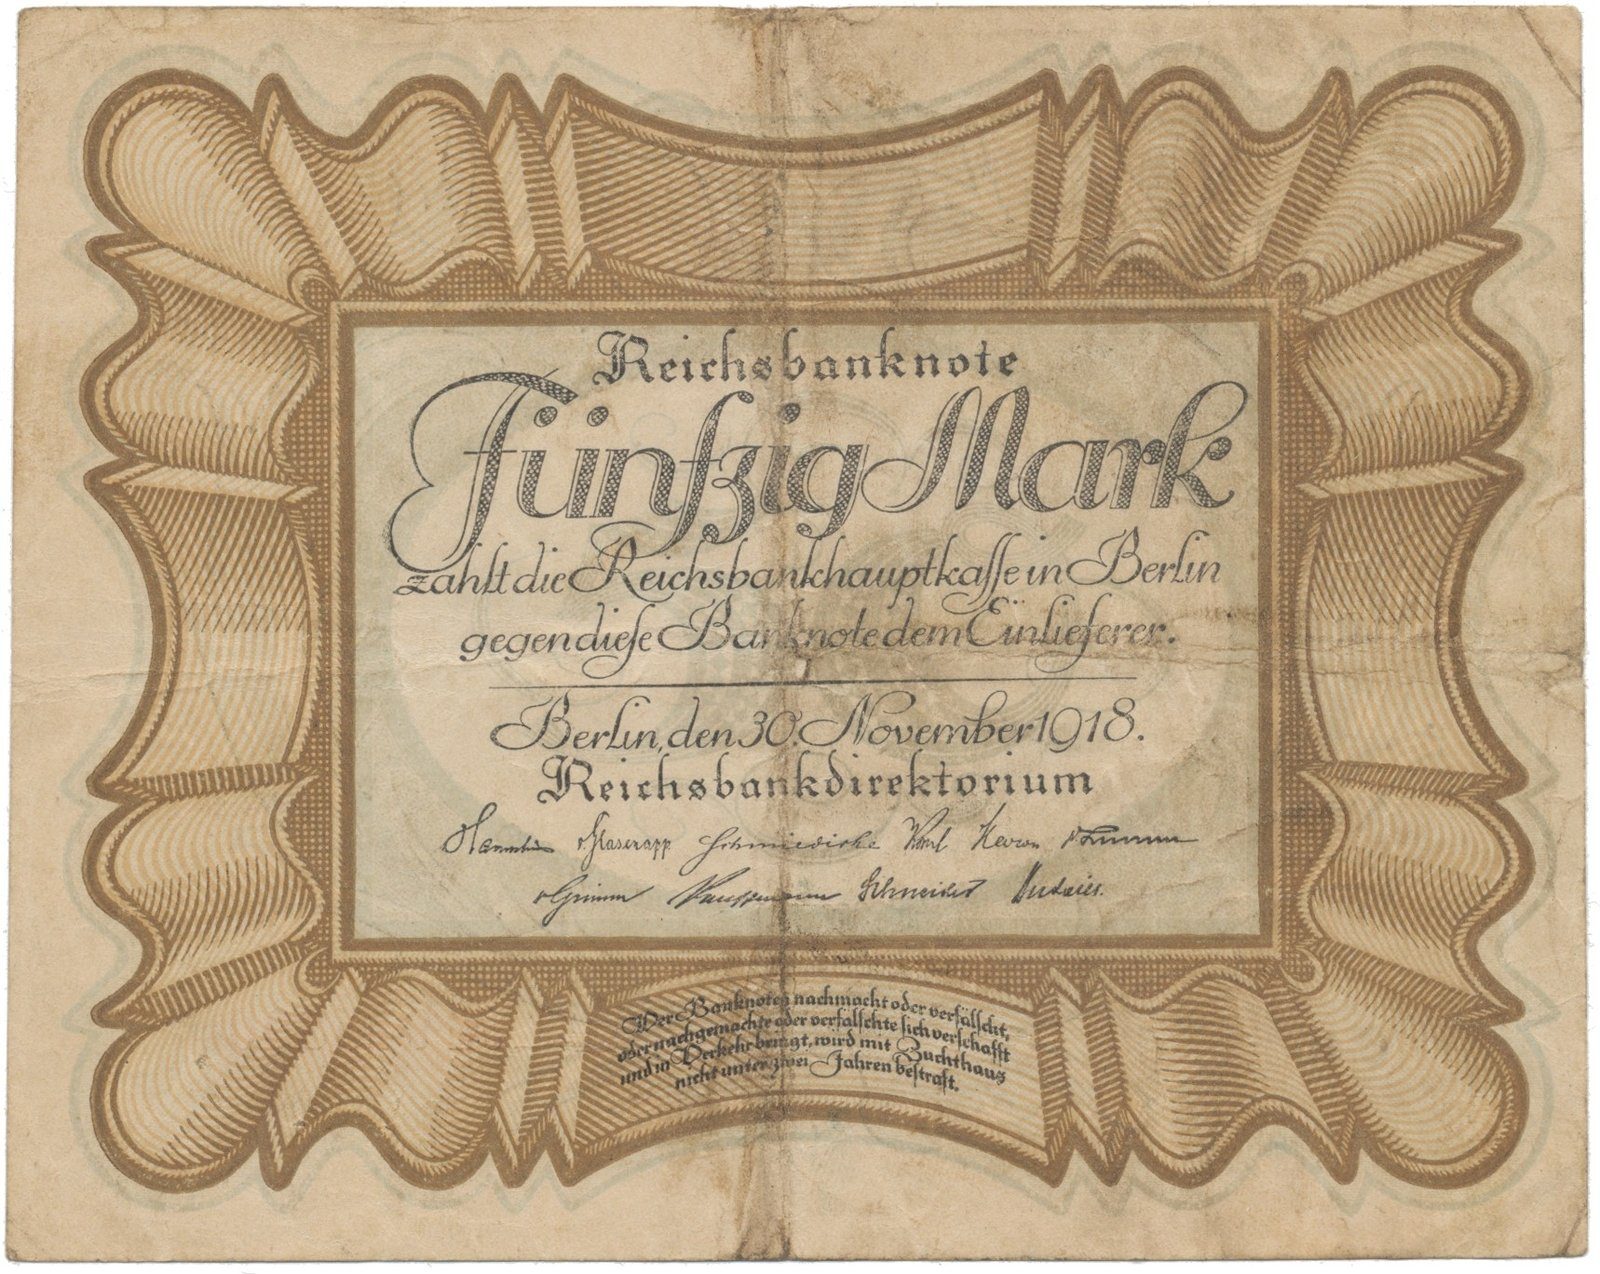 Reichsbanknote
Fünfzig Mark
zahlt die Reichsbankhauptkasse in Berlin
gegen diese Banknote dem Einlieferer.
Berlin, den 30. November 1918.
Reichsbankdirektorium
v Glasenapp Schmiedicke Korn
v Grimm Kauffmann Schneider Budczies
Wer Banknoten nachmacht oder verfälscht,
oder nachgemachte oder verfälschte sich verschafft
und in Verkehr bringt, wird mit Zuchthaus
nicht unter zwei Jahren bestraft.